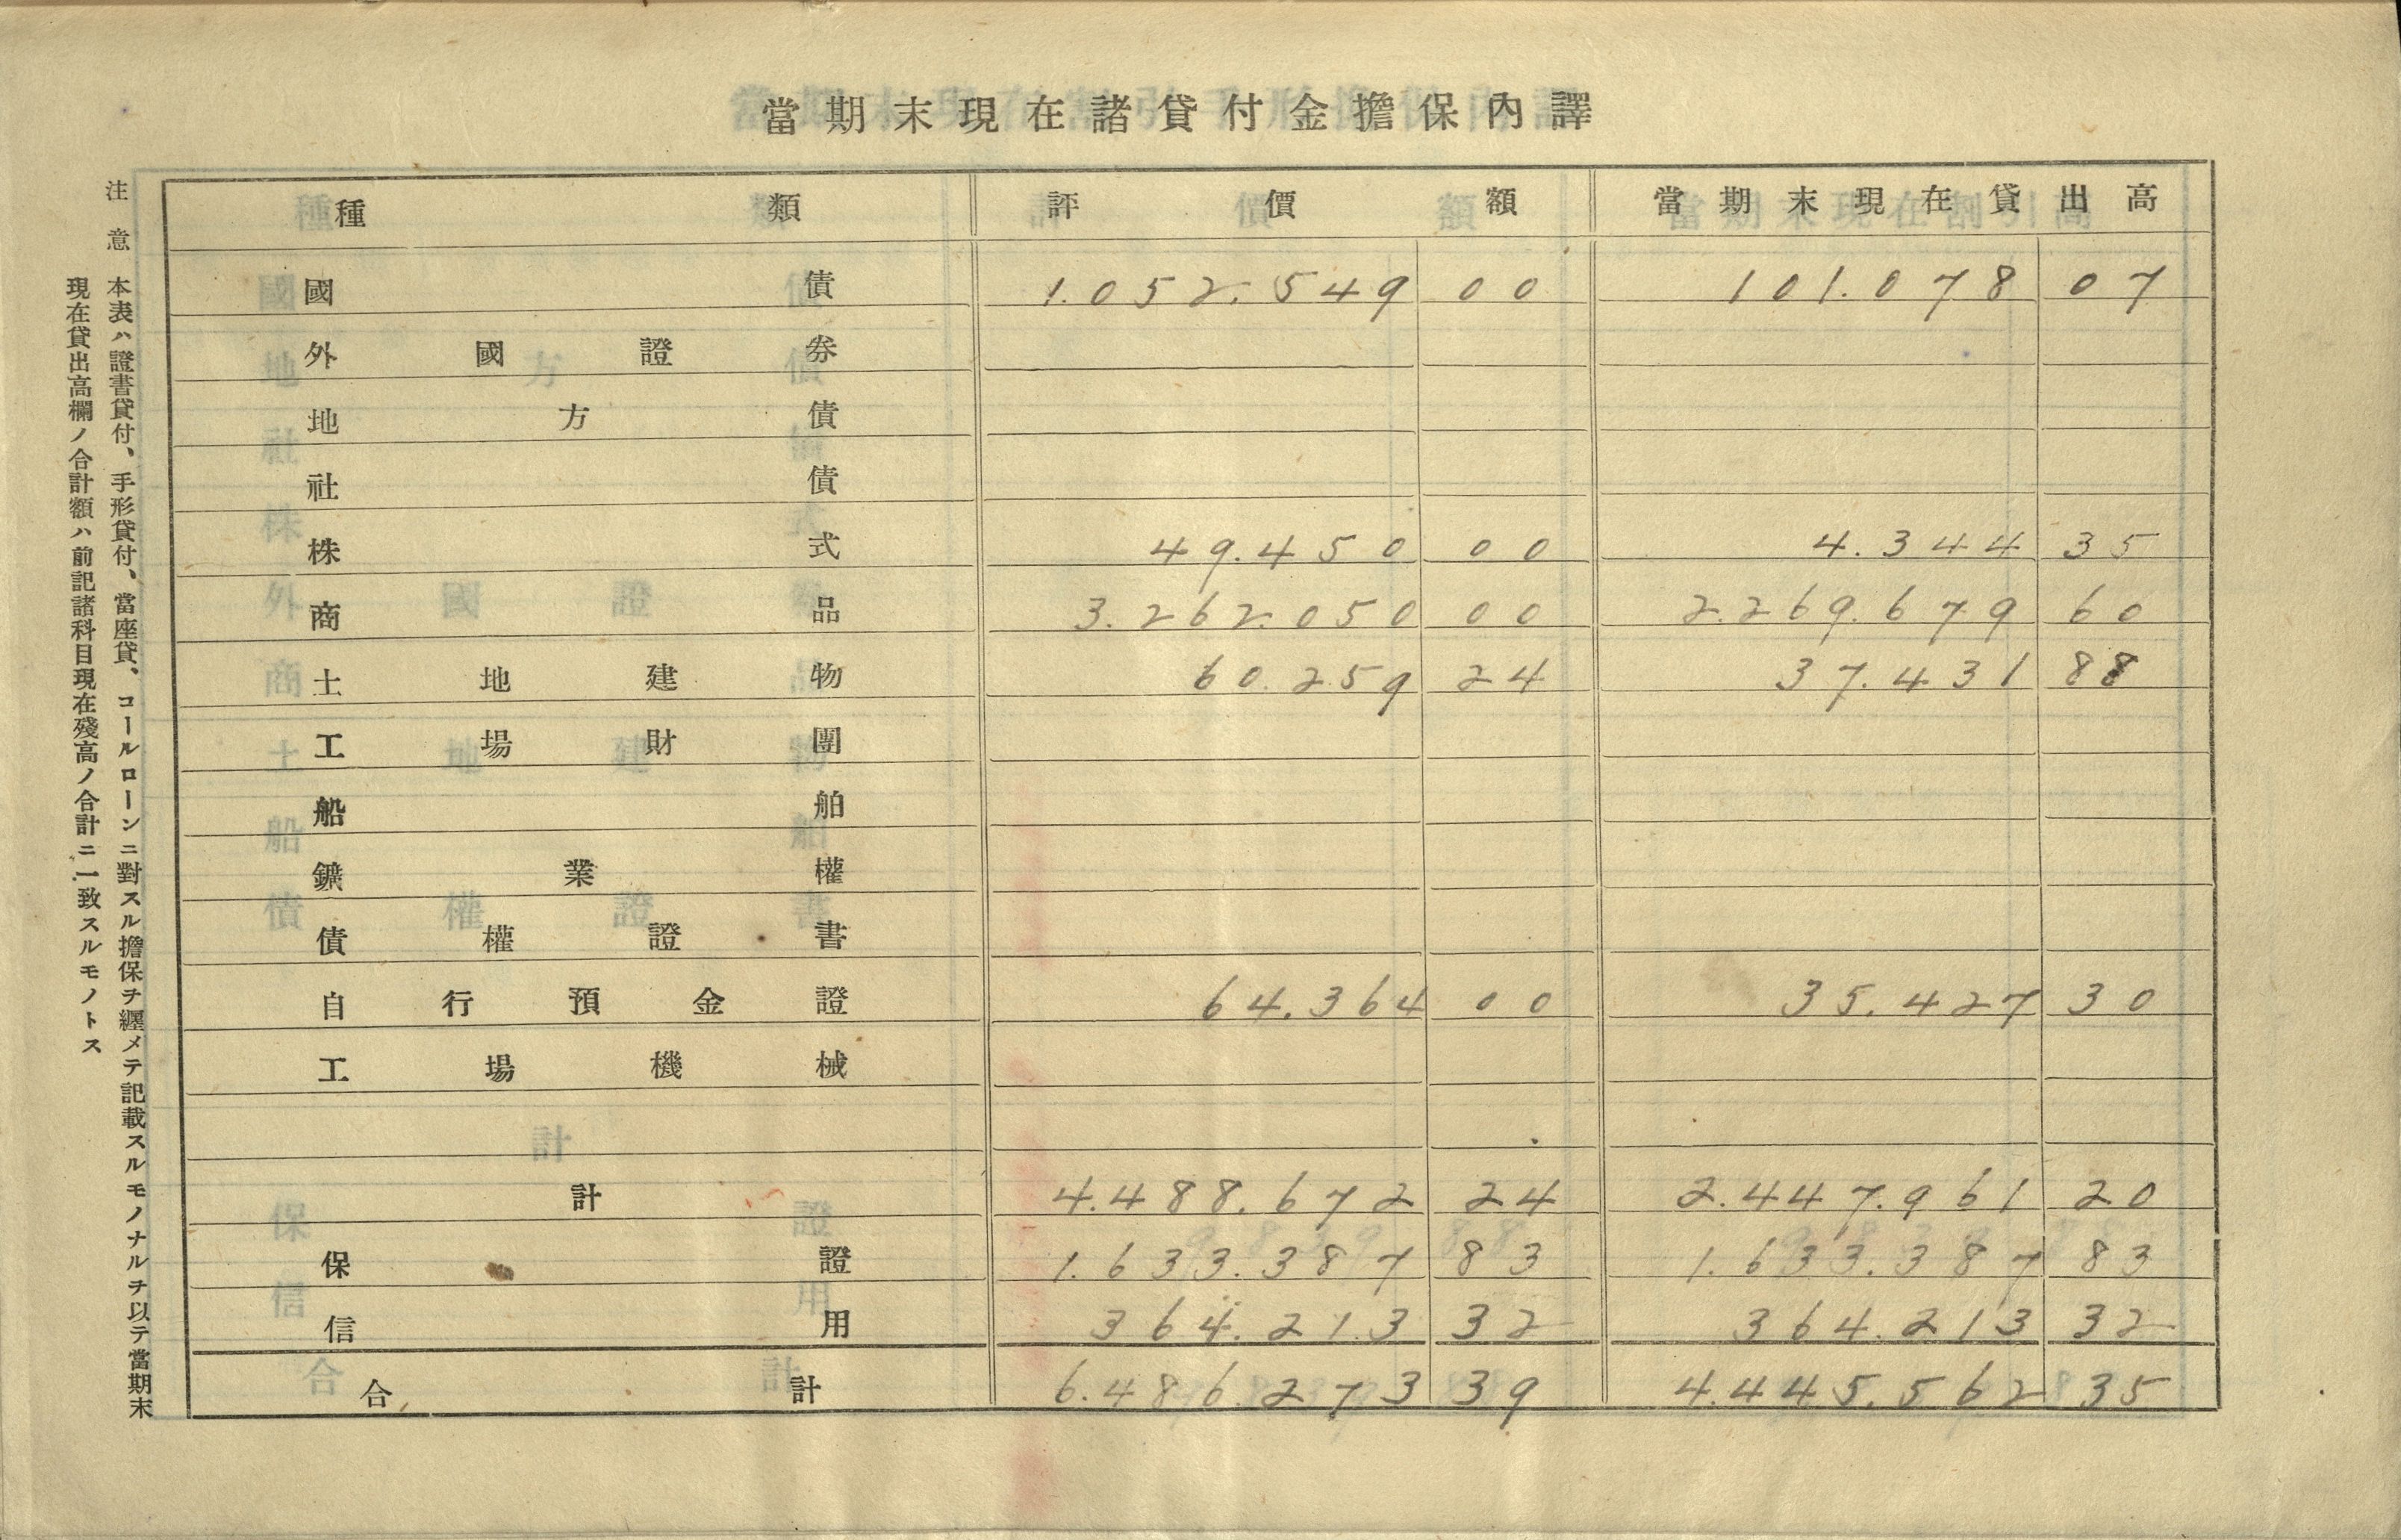 當期末現在諸貸付金擔保內譯
種類 評價額 當期末現在貸出高
國債 1.052.549 00 101.078 07
外國證券
地方債
社債
株式 49.450 00 4.344 35
商品 3.262.050 00 2.269.679 60
土地建物 60.259 24 37.431 88
工場財團
船舶
鑛業權
債權證書
自行預金證 64.364 00 35.427 30
工場機械
計 4.488.672 24 2.447.961 20
保證 1.633.387 83 1.633.387 83
信用 364.213 32 364.213 32
合計 6.486.273 39 4.445.562 35
注意 本表ハ證書貸付、手形貸付、當座貸、コールローンニ對スル擔保ヲ纒メテ記載スルモノナルヲ以テ當期末
現在貸出高欄ノ合計額ハ前記諸科目現在殘高ノ合計ニ一致スルモノトス